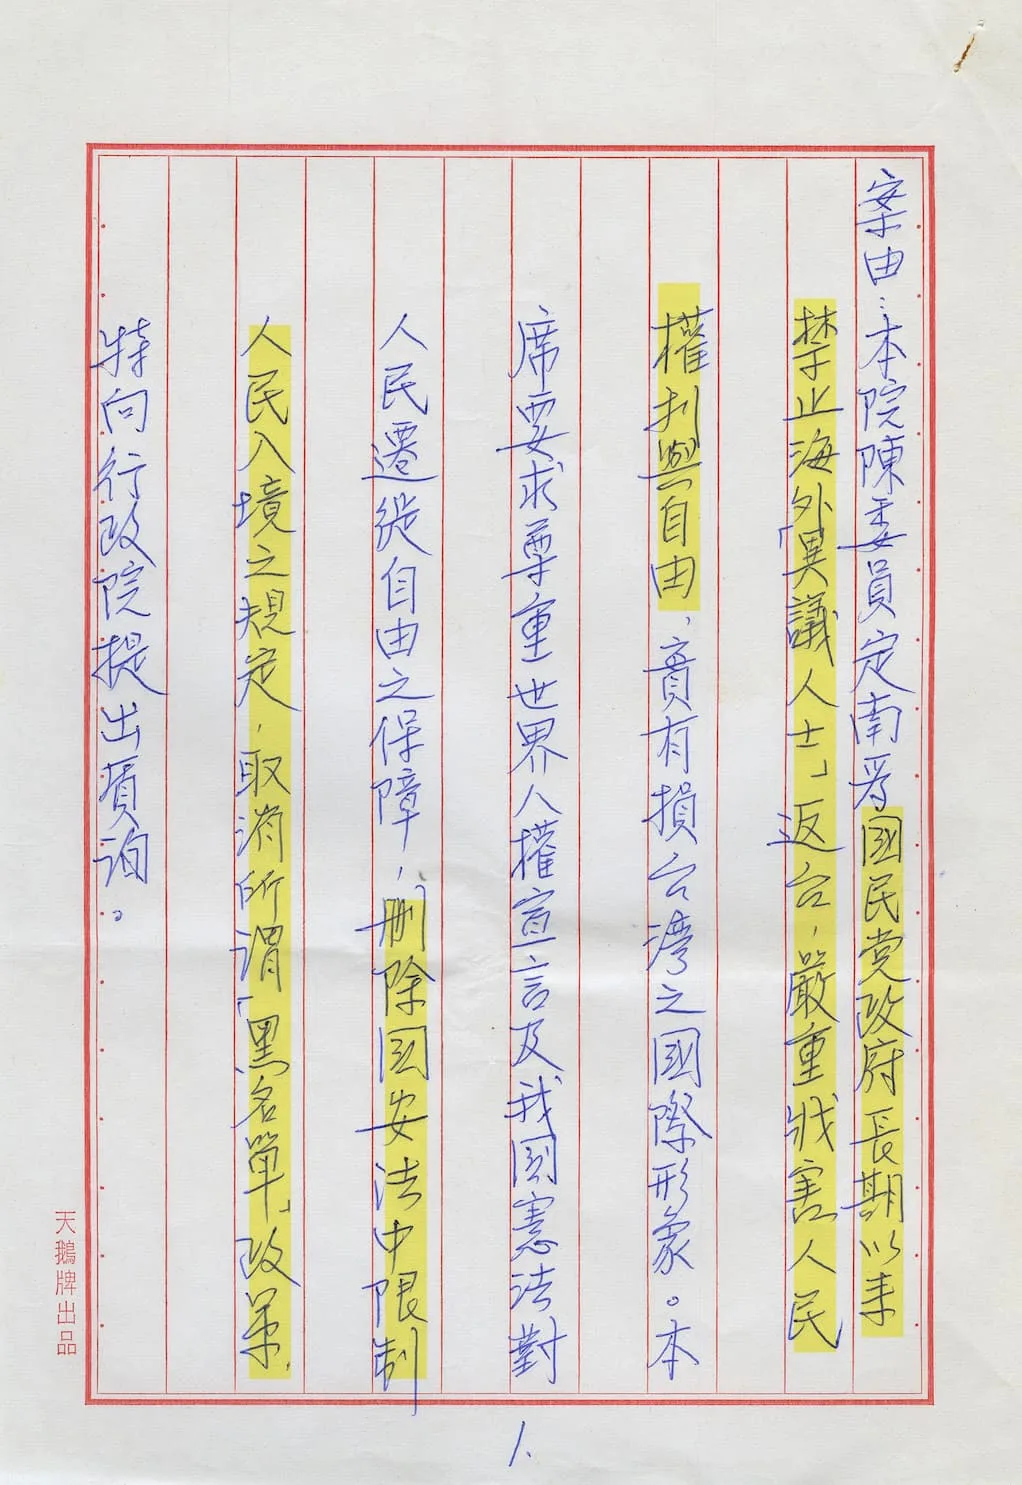 案由：本院陳委員定南為國民党政府長期以来
禁止海外「異議人士」返台，嚴重戕害人民
權利與自由，實有損台湾之國際形象。本
席要求尊重世界人權宣言及我國憲法對
人民遷徙自由之保障，刪除國安法中限制
人民入境之規定，取消所謂「黑名單」政策，
特向行政院提出質詢。
1.
天鵝牌出品